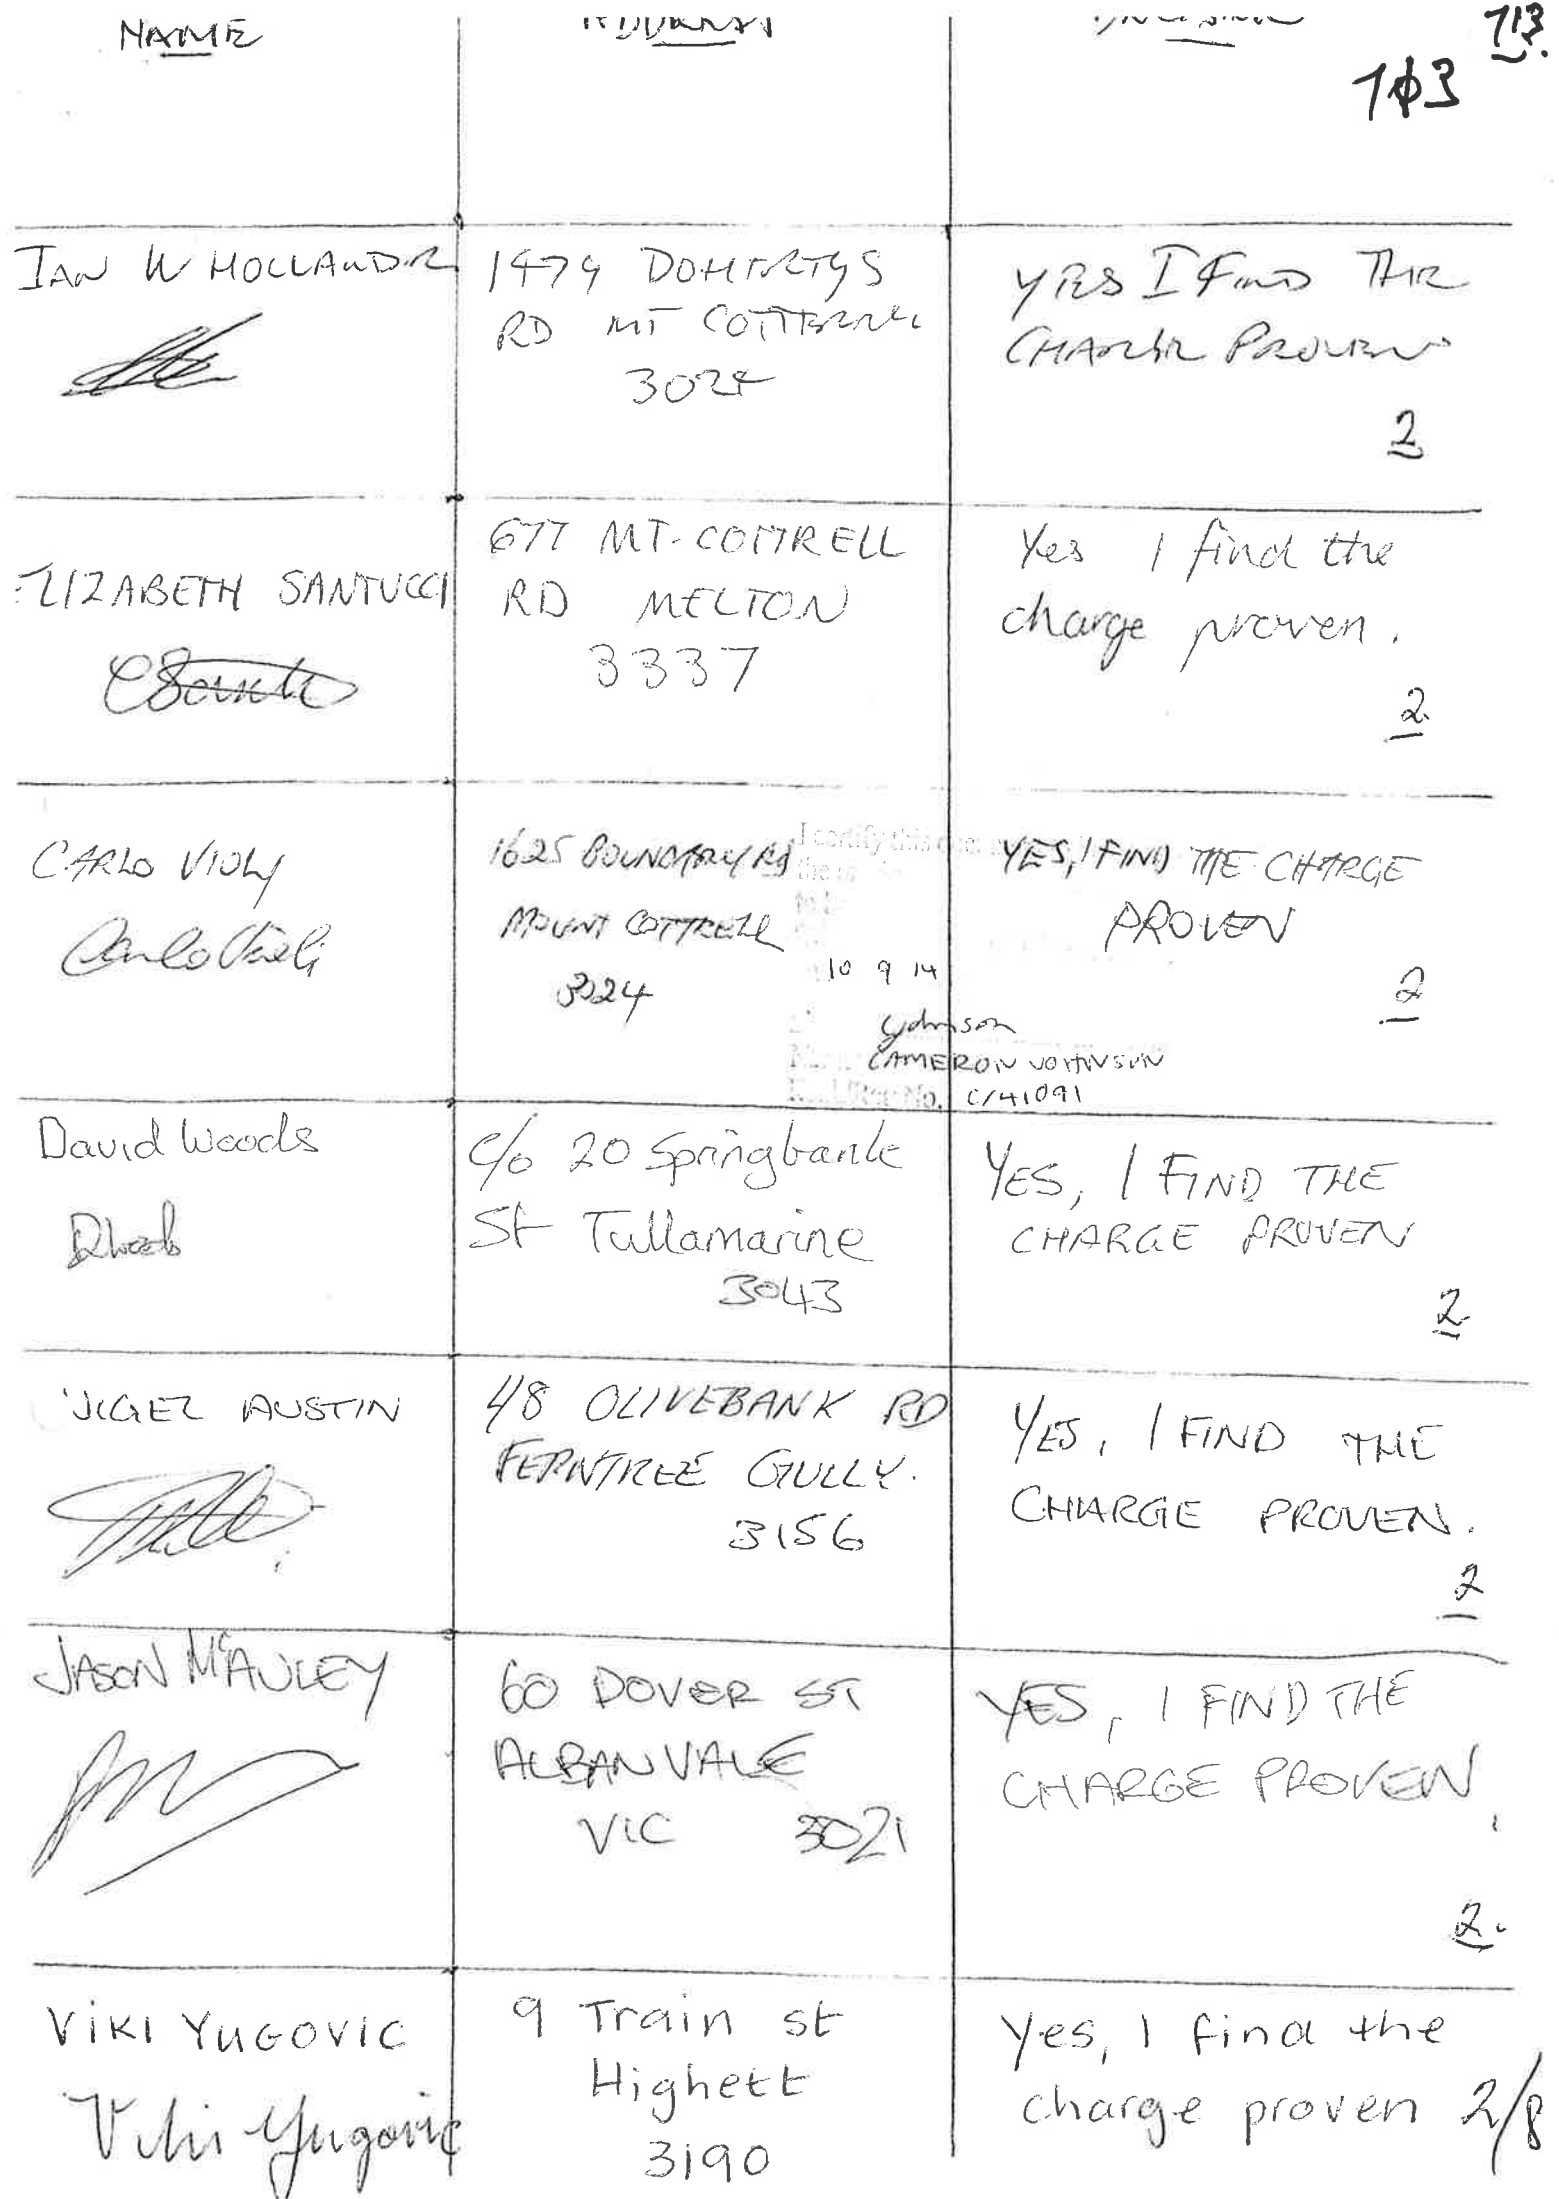 NAME
713.
103
IAN W HOLLANDR
1479 DOHERTYS
RD MT COTTERELL
3024
YES I FIND THE
CHARGE PROVEN
2
ELIZABETH SANTUCCI
677 MT-COTTRELL
RD MELTON
3337
Yes I find the
charge proven.
2
CARLO VIOLY
Carlo Violi
1625 BOUNDARY RD
MOUNT COTTRELL
3024
I certify this
10 9 14
CJohnson
CAMERON JOHNSON
No. C/41091
YES, I FIND THE CHARGE
PROVEN
2
David Woods
DWoods
c/o 20 Springbank
St Tullamarine
3043
YES, I FIND THE
CHARGE PROVEN
2
NIGEL AUSTIN
48 OLIVEBANK RD
FERNTREE GULLY.
3156
YES, I FIND THE
CHARGE PROVEN.
2
JASON McAULEY
60 DOVER ST
ALBANVALE
VIC 3021
YES, I FIND THE
CHARGE PROVEN.
2.
VIKI YUGOVIC
Viki Yugovic
9 Train st
Highett
3190
Yes, I find the
charge proven 2/8